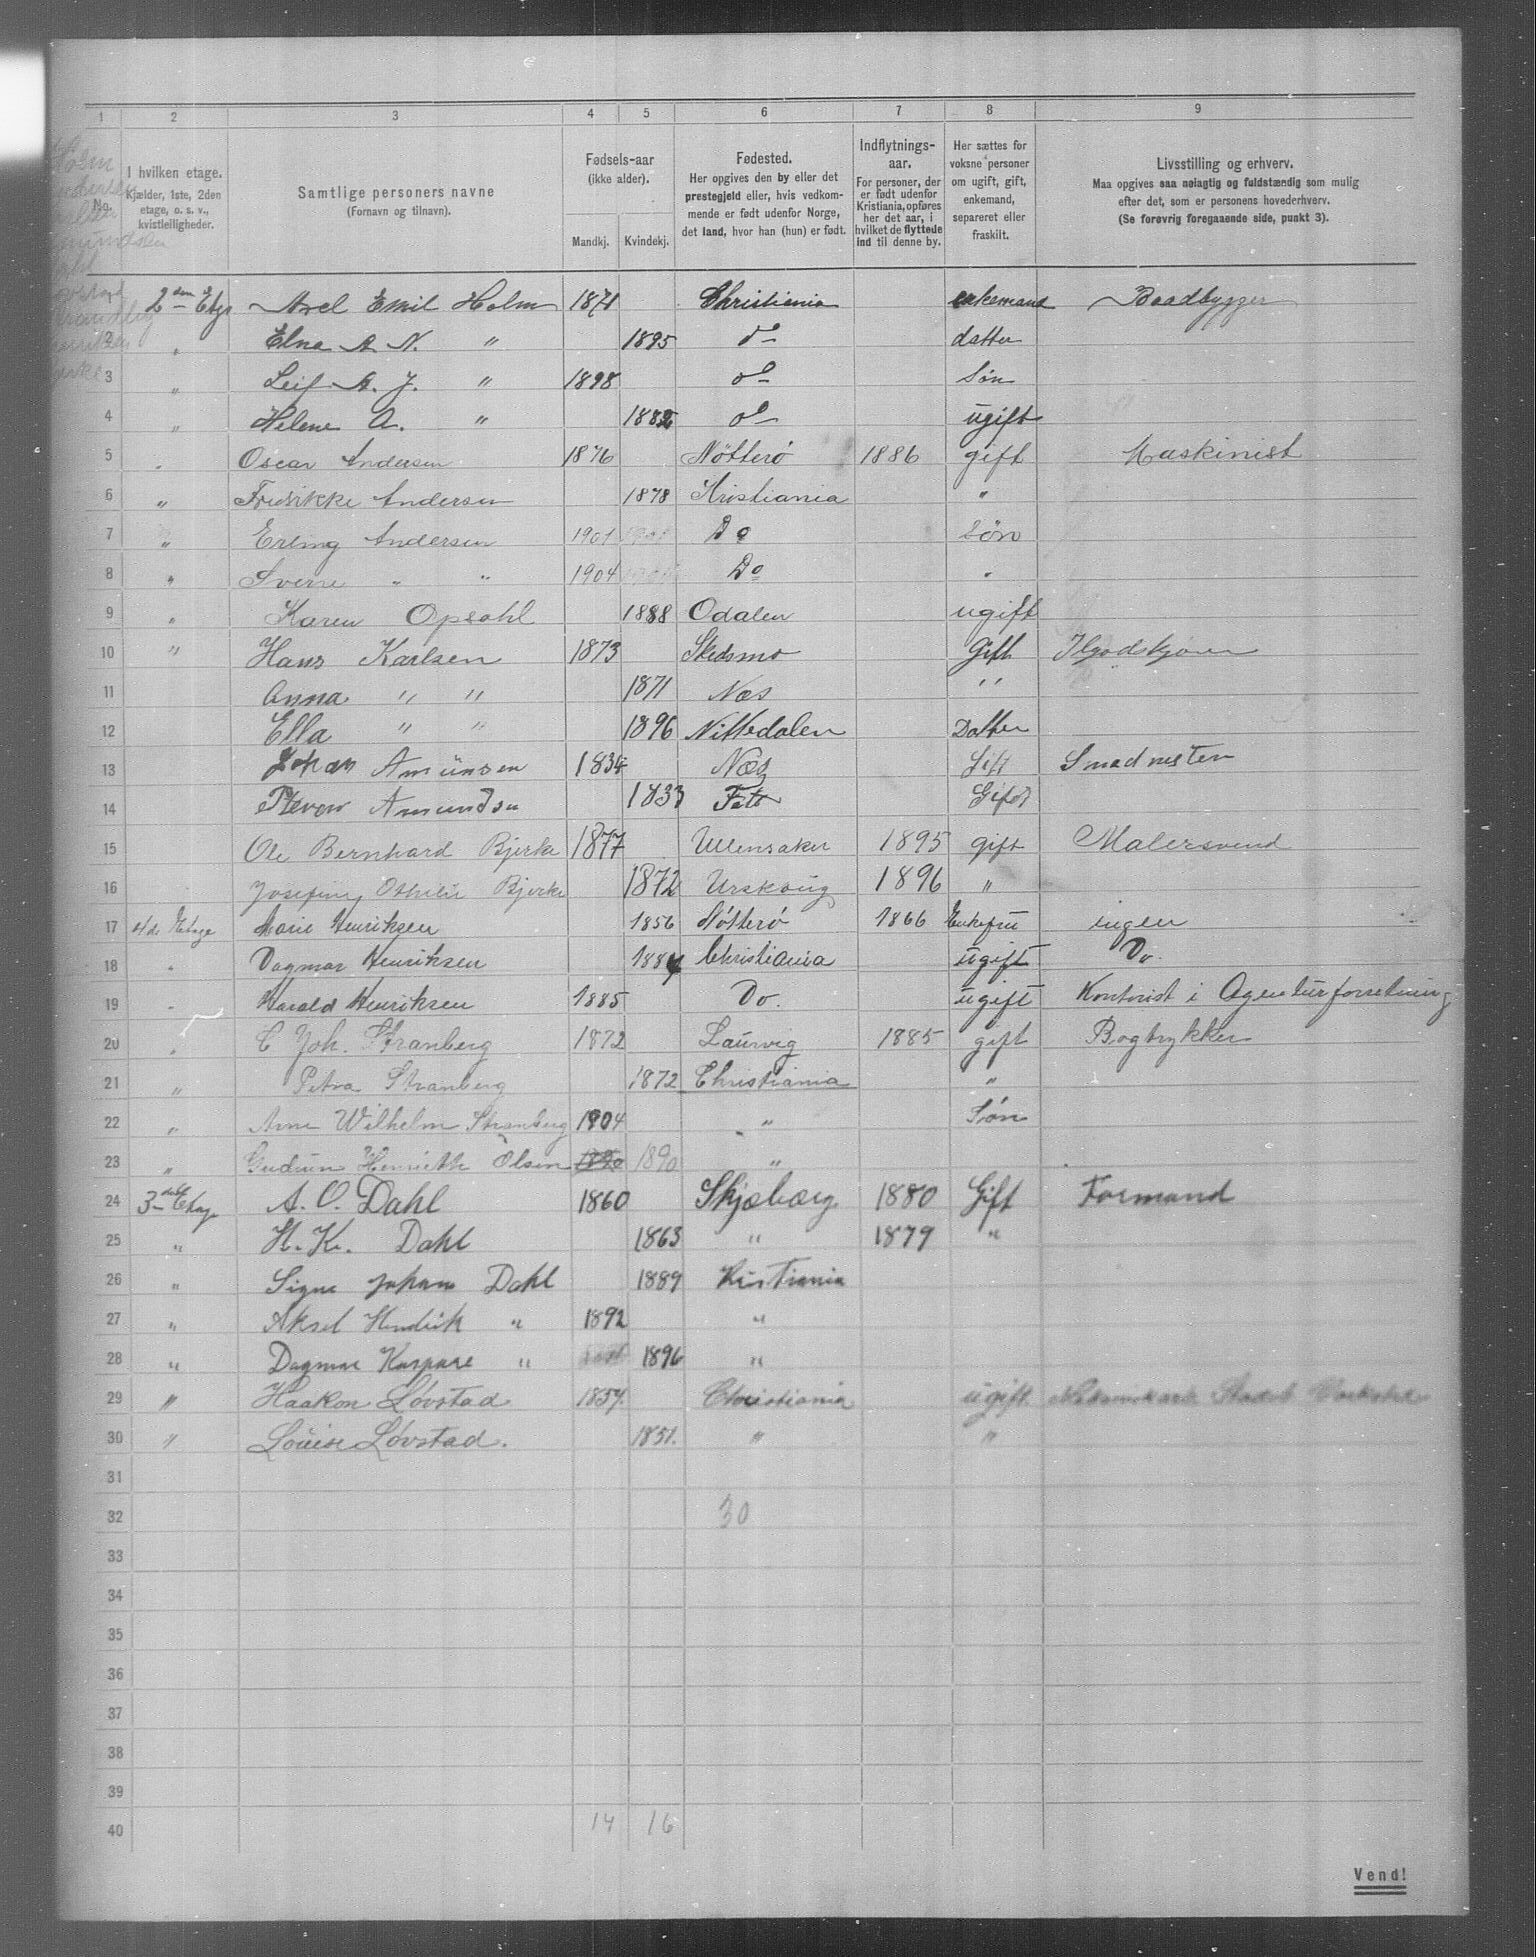 1 2 3 4 5 6 7 8 9
No.
I hvilken etage.
Kjælder, 1ste, 2den etage, o. s. v., kvistleiligheder.
Samtlige personers navne
(Fornavn og tilnavn).
Fødsels-aar
(ikke alder).
Mandkj. Kvindekj.
Fødested.
Her opgives den by eller det prestegjeld eller, hvis vedkommende er født udenfor Norge, det land, hvor han (hun) er født.
Indflytnings-aar.
For personer, der er født udenfor Kristiania, opføres her det aar, i hvilket de flyttede ind til denne by.
Her sættes for voksne personer om ugift, gift, enkemand, separeret eller fraskilt.
Livsstilling og erhverv.
Maa opgives saa nøiagtig og fuldstændig som mulig efter det, som er personens hovederhverv.
(Se forøvrig foregaaende side, punkt 3).
Holm
2den Etge Axel Emil Holm 1871 Christiania enkemand Baadbygger
2 " Elna A N. " 1895 do datter
3 " Leif A. J. " 1898 do Søn
4 " Helene A. " 1882 do ugift
5 " Oscar Andersen 1876 Nötterö 1886 gift Maskinist
6 " Fredrikke Andersen 1878 Kristiania "
7 " Erling Andersen 1901 Do søn
8 " Sverre " " 1904 Do "
9 " Karen Opsahl 1888 Odalen ugift
10 " Hans Karlsen 1873 Skedsmo Gift
11 Anna " " 1871 Næs " "
12 Ella " " 1896 Nittedalen Datter
13 Johan Amünsen 1834 Næs Gift
14 Amundsen 1833 Fet Gift
15 Ole Bernhard Bjerke 1877 Ullensaker 1895 gift Malersvend
16 Josefine Othilie Bjerke 1872 Urskoug 1896 "
17 4de Etage Marie Henriksen 1856 Nötterö 1866 Enkefru ingen
18 " Dagmar Henriksen 1884 Christiania ugift Do.
19 " Harald Henriksen 1885 Do. ugift Kontorist i Agenturforretning
20 " C Joh. Stranberg 1872 Laurvig 1885 gift Bogtrykker
21 " Petra Stranberg 1872 Christiania "
22 " Arne Wilhelm Stranberg 1904 " Søn
23 " Gudrun Henriette Olsen 1890 1890 "
24 3die Etag A. O. Dahl 1860 Skjæbærg 1880 Gift Formand
25 " H. K. Dahl 1863 " 1879 "
26 " Signe Johan Dahl 1889 Kristiania
27 " Aksel Hendrik " 1892 "
28 " Dagmar Kaspare " 1896 "
29 " Haakon Løvstad 1857. Christiania ugift
30 " Louise Løvstad. 1851. " "
31
32 30
33
34
35
36
37
38
39
40 14 16
Vend!